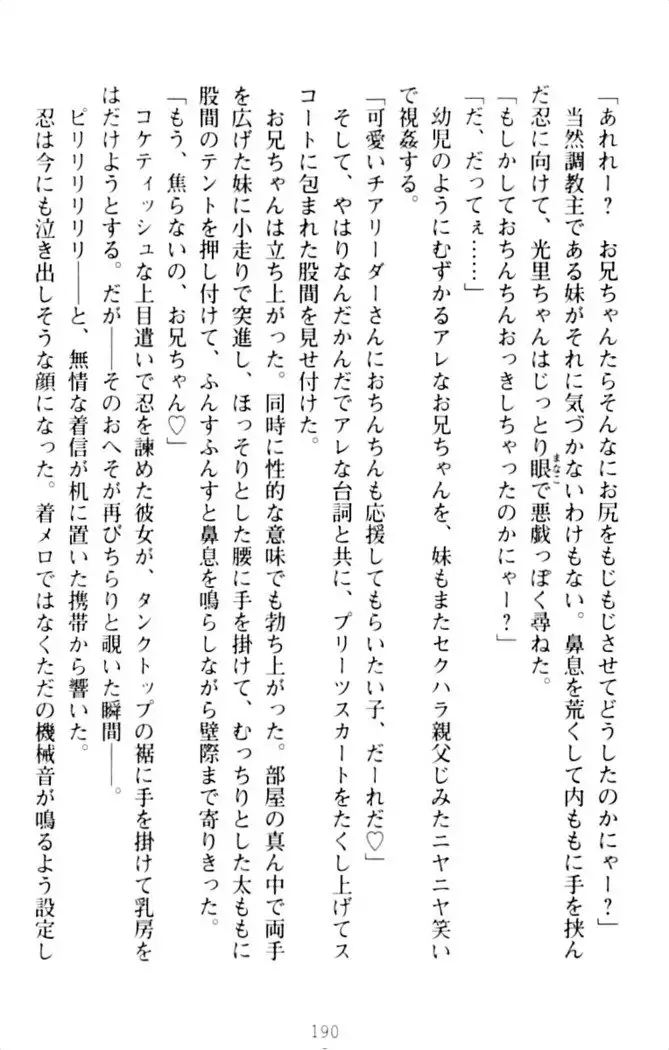 「あれれー？　お兄ちゃんたらそんなにお尻をもじもじさせてどうしたのかにゃー？」
当然調教主である妹がそれに気づかないわけもない。鼻息を荒くして内ももに手を挟ん
だ忍に向けて、光里ちゃんはじっとり眼で悪戯っぽく尋ねた。
まなこ
「もしかしておちんちんおっきしちゃったのかにゃー？」
「だ、だってぇ……」
幼児のようにむずかるアレなお兄ちゃんを、妹もまたセクハラ親父じみたニヤニヤ笑い
で視姦する。
「可愛いチアリーダーさんにおちんちんも応援してもらいたい子、だーれだ♡」
そして、やはりなんだかんだでアレな台詞と共に、プリーツスカートをたくし上げてス
コートに包まれた股間を見せ付けた。
お兄ちゃんは立ち上がった。同時に性的な意味でも勃ち上がった。部屋の真ん中で両手
を広げた妹に小走りで突進し、ほっそりとした腰に手を掛けて、むっちりとした太ももに
股間のテントを押し付けて、ふんすふんすと鼻息を鳴らしながら壁際まで寄りきった。
「もう、焦らないの、お兄ちゃん♡」
コケティッシュな上目遣いで忍を諫めた彼女が、タンクトップの裾に手を掛けて乳房を
はだけようとする。だが――そのおへそが再びちらりと覗いた瞬間――。
ピリリリリリリ――と、無情な着信が机に置いた携帯から響いた。
忍は今にも泣き出しそうな顔になった。着メロではなくただの機械音が鳴るよう設定し
190